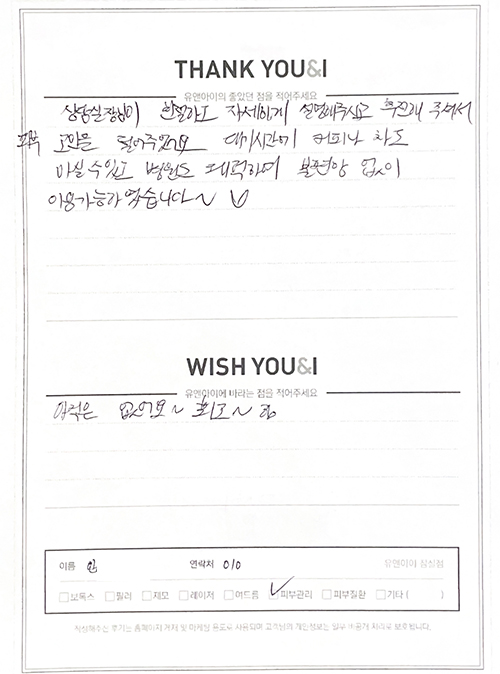 THANK YOU&I
유앤아이의 좋았던 점을 적어주세요
상담실장님이 친절하고 자세하게 설명해주시고 추천해 주셔서
피부 고민을 덜어주었어요 대기시간에 커피나 차도
마실 수 있고 병원도 쾌적하여 불편함 없이
이용가능하였습니다~
WISH YOU&I
유앤아이에 바라는 점을 적어주세요
아직은 없어요~ 최고~
이름 안 연락처 010 유앤아이 잠실점
보톡스 필러 제모 레이저 여드름 ✓피부관리 피부질환 기타 ( )
작성해주신 후기는 홈페이지 게재 및 마케팅 용도로 사용되며 고객님의 개인정보는 일부 비공개 처리로 보호됩니다.